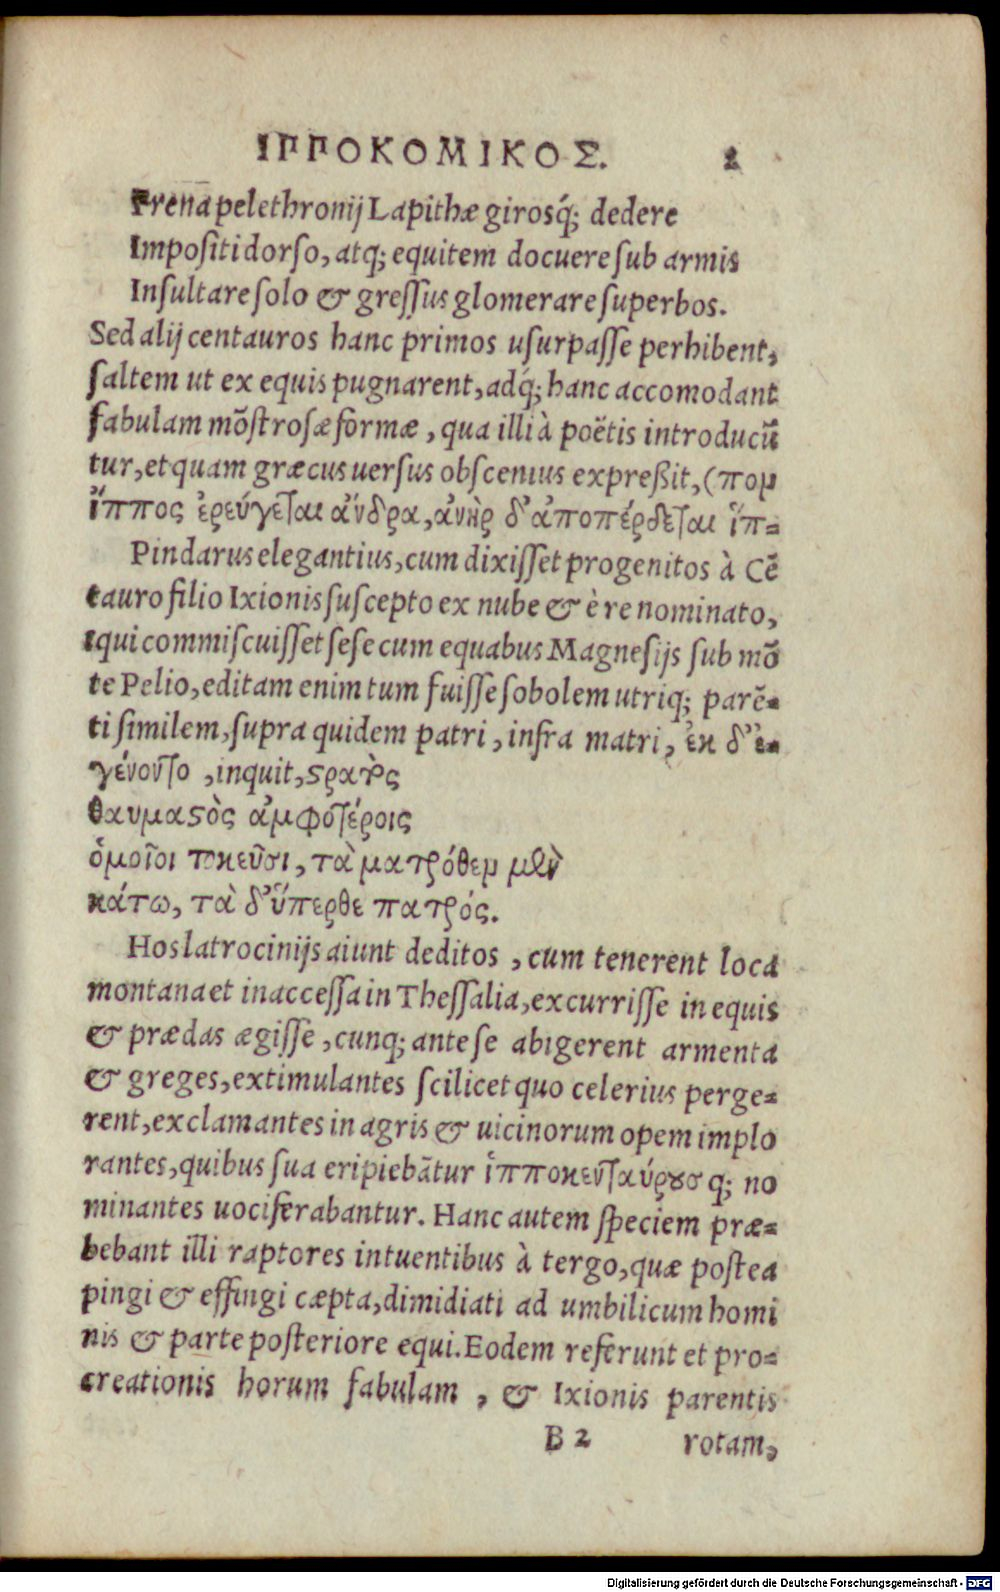 ΙΠΠΟΚΟΜΙΚΟΣ. 2
Frena pelethronij Lapithæ girosq́; dedere
Impositi dorso, atq; equitem docuere sub armis
Insultare solo & gressus glomerare superbos.
Sed alij centauros hanc primos usurpasse perhibent,
saltem ut ex equis pugnarent, adq́; hanc accomodant
fabulam mōstrosæ formæ, qua illi à poëtis introducū
tur, et quam græcus uersus obscenius expreßit, (πον
ἵππος ἐρεύγεται ἄνδρα, ἀνὴρ δ' ἀποπέρδεται ἵπ-
Pindarus elegantius, cum dixisset progenitos à Cē
tauro filio Ixionis suscepto ex nube & è re nominato,
qui commiscuisset sese cum equabus Magnesijs sub mō
te Pelio, editam enim tum fuisse sobolem utriq; parē-
ti similem, supra quidem patri, infra matri, ἐκ δ' ἐ-
γένοντο, inquit, ϛρατὸς
θαυμαϛὸς ἀμφοτέροις
ὁμοῖοι τοκεῦσι, τὰ ματρόθεν μὲν
κάτω, τὰ δ' ὕπερθε πατρός.
Hos latrocinijs aiunt deditos, cum tenerent loca
montana et inaccessa in Thessalia, excurrisse in equis
& prædas ægisse, cunq; ante se abigerent armenta
& greges, extimulantes scilicet quo celerius perge-
rent, exclamantes in agris & uicinorum opem implo
rantes, quibus sua eripiebātur ἱπποκενταύρουσ q; no
minantes uociferabantur. Hanc autem speciem præ-
bebant illi raptores intuentibus à tergo, quæ postea
pingi & effingi cæpta, dimidiati ad umbilicum homi
nis & parte posteriore equi. Eodem referunt et pro-
creationis horum fabulam, & Ixionis parentis
B 2 rotam,
Digitalisierung gefördert durch die Deutsche Forschungsgemeinschaft - DFG